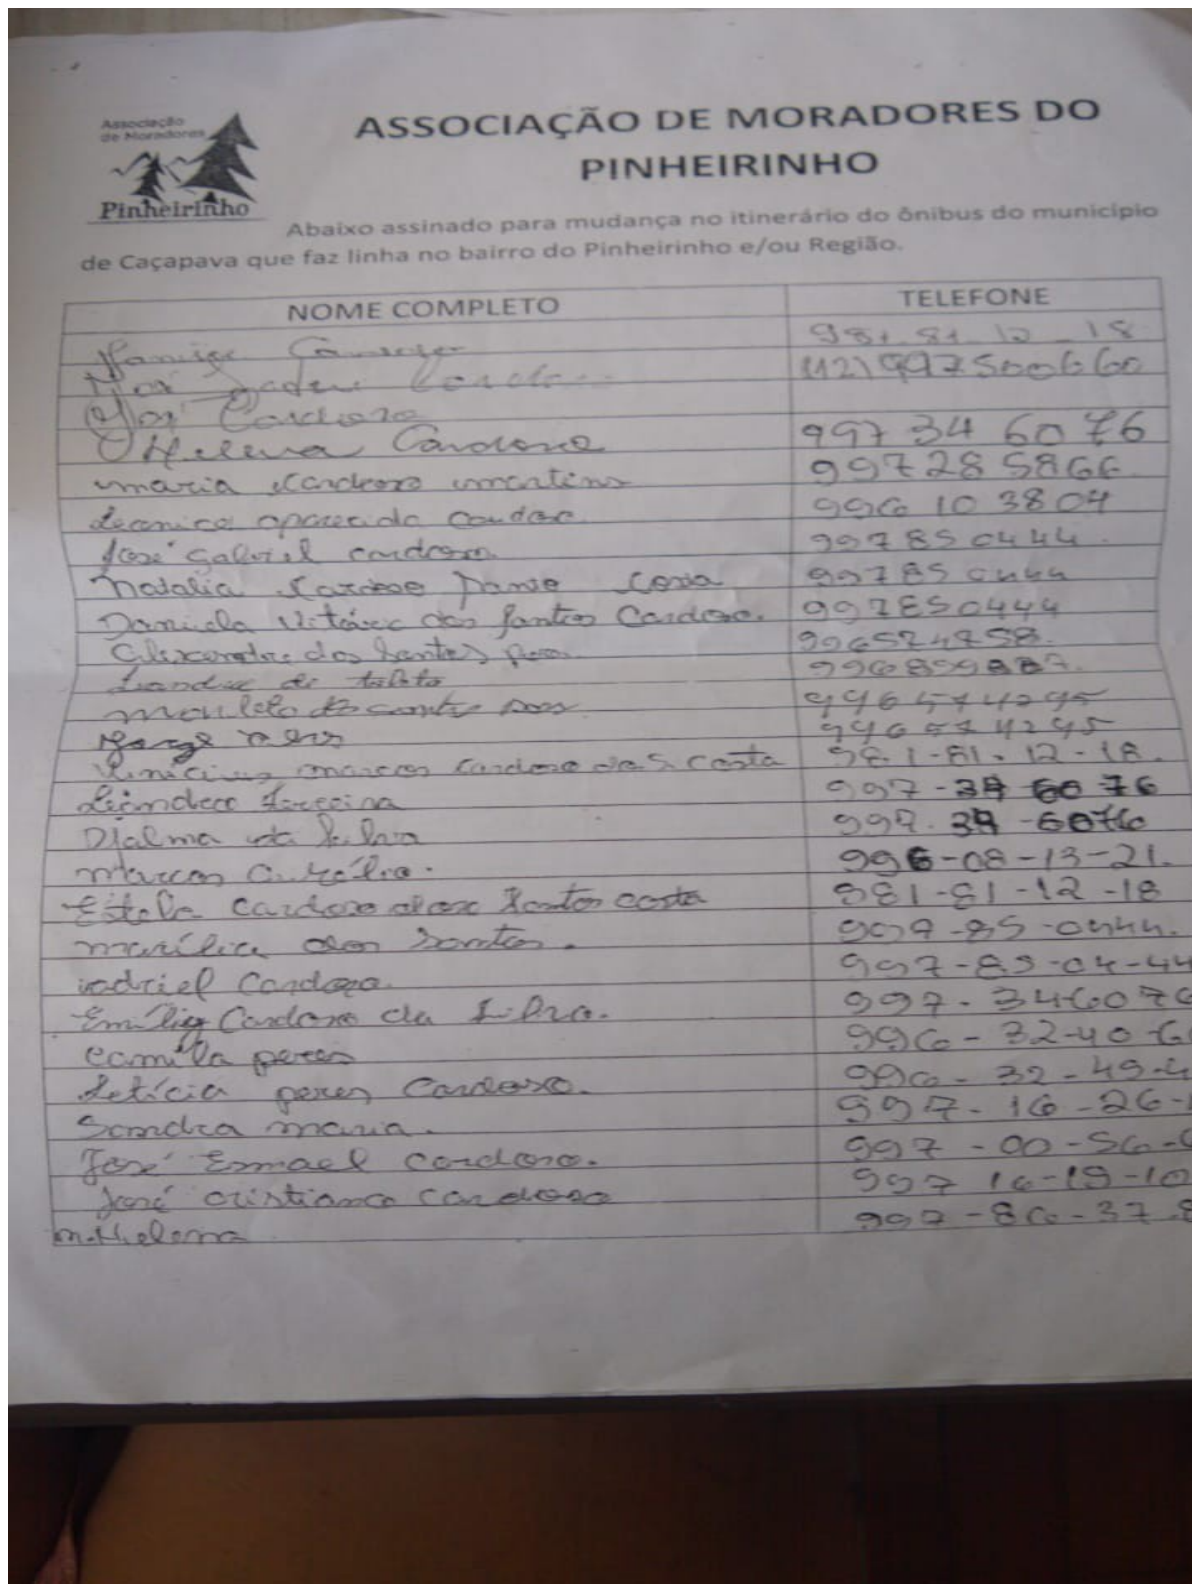 Associação
de Moradores
Pinheirinho
ASSOCIAÇÃO DE MORADORES DO
PINHEIRINHO
Abaixo assinado para mudança no itinerário do ônibus do município
de Caçapava que faz linha no bairro do Pinheirinho e/ou Região.
NOME COMPLETO TELEFONE
981.81.12_18
(12) 9975006660
Cardozo
Helena Cardoso 997 34 6076
maria Cardozo martins 997285866
aparecida 996103804
José Gabriel cardoso 997850444
Natalia Costa 997850444
Daniela dos Santos Cardoso. 997850444
dos Santos 996524758.
Leandro de
dos 996574295
Jorge 996574295
Vinicius marcos Cardoso da S. costa 981-81-12-18.
Ferreira 997-34 60 76
Djalma da Silva 997.34-6076
marcos Aurélio. 996-08-13-21.
Estela Cardoso dos Santos costa 981-81-12-18
marília dos Santos. 997-85-0444.
Cardozo. 997-85-04-44
Emilia Cardoso da Silva. 997-346076
Camila peres 996-32-40-6
Letícia peres Cardoso. 996-32-49-4
Sandra maria. 997-16-26-1
José Esmael Cardoso. 997-00-56-
José cristiano cardoso 997 16-19-10
m.Helena 997-86-37-8